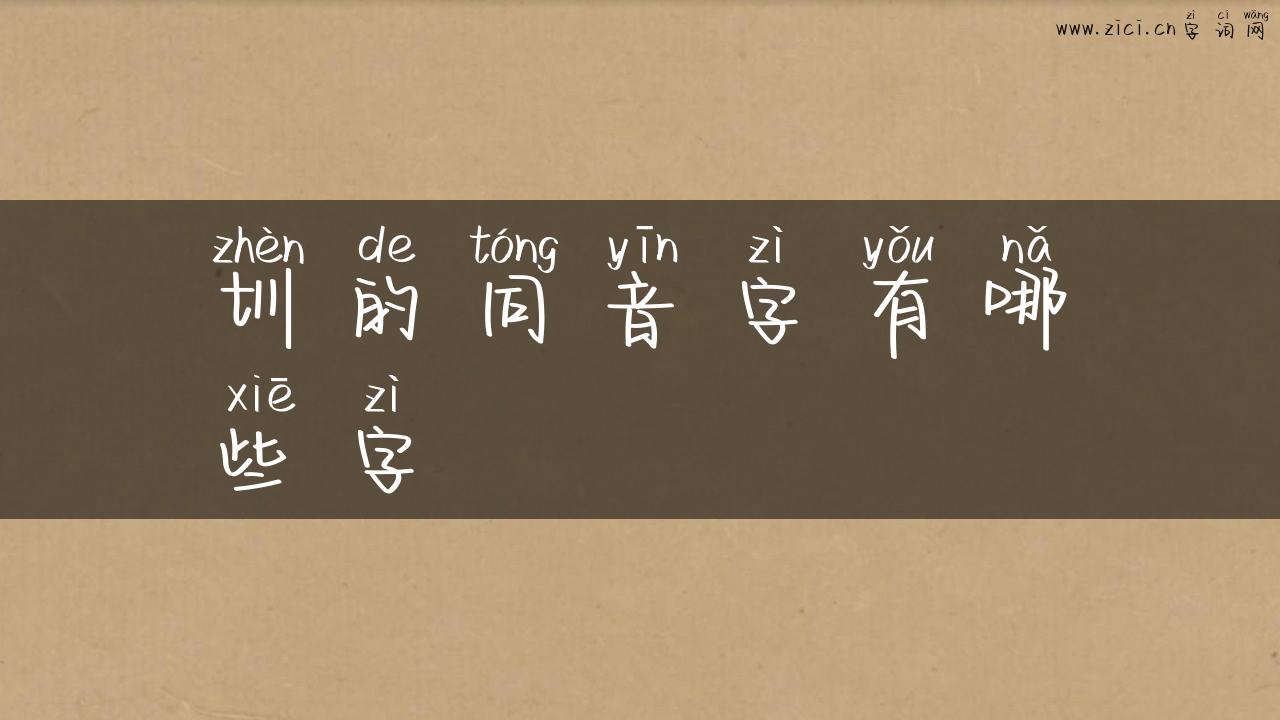 zì cí wǎng
www.zici.cn 字词网
zhèn de tóng yīn zì yǒu nǎ
圳的同音字有哪
xiē zì
些字